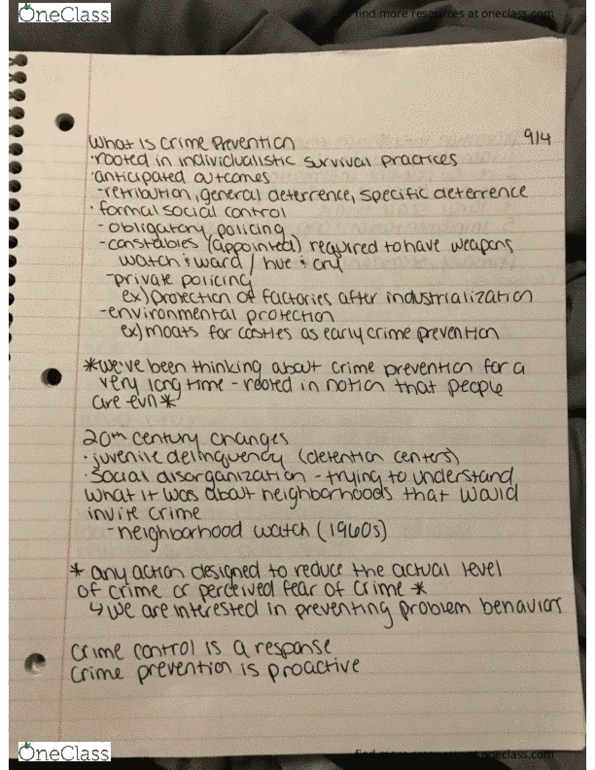 OneClass
find more resources at oneclass.com
9/4
What is Crime Prevention
·rooted in individualistic survival practices
·anticipated outcomes
-retribution, general deterrence, specific deterrence
·formal social control
-obligatory policing
-constables (appointed) required to have weapons
watch & ward / hue & cry
-private policing
ex) protection of factories after industrialization
-environmental protection
ex) moats for castles as early crime prevention
*we've been thinking about crime prevention for a
very long time - rooted in notion that people
are evil*
20th century changes
·juvenile delinquency (detention centers)
·social disorganization - trying to understand
what it was about neighborhoods that would
invite crime
-neighborhood watch (1960s)
* any action designed to reduce the actual level
of crime or perceived fear of crime *
↳ we are interested in preventing problem behavior
crime control is a response
crime prevention is proactive
OneClass
find more resources at oneclass.com